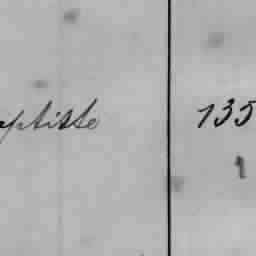 aptiste 135